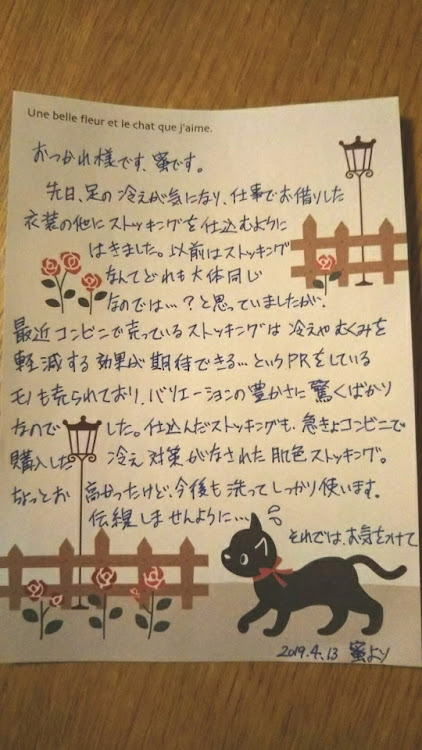 Une belle fleur et le chat que j'aime.
おつかれ様です、蜜です。
先日、足の冷えが気になり、仕事でお借りした
衣装の他にストッキングを仕込むように
はきました。以前はストッキング
なんてどれも大体同じ
なのでは…？と思っていましたが、
最近コンビニで売っているストッキングは冷えやむくみを
軽減する効果が期待できる…というPRをしている
モノも売られており、バリエーションの豊かさに驚くばかり
なのでした。仕込んだストッキングも、急きょコンビニで
購入した冷え対策がなされた肌色ストッキング。
ちょっとお高かったけど、今後も洗ってしっかり使います。
伝線しませんように…
それでは、お気をつけて
2019.4.13 蜜より